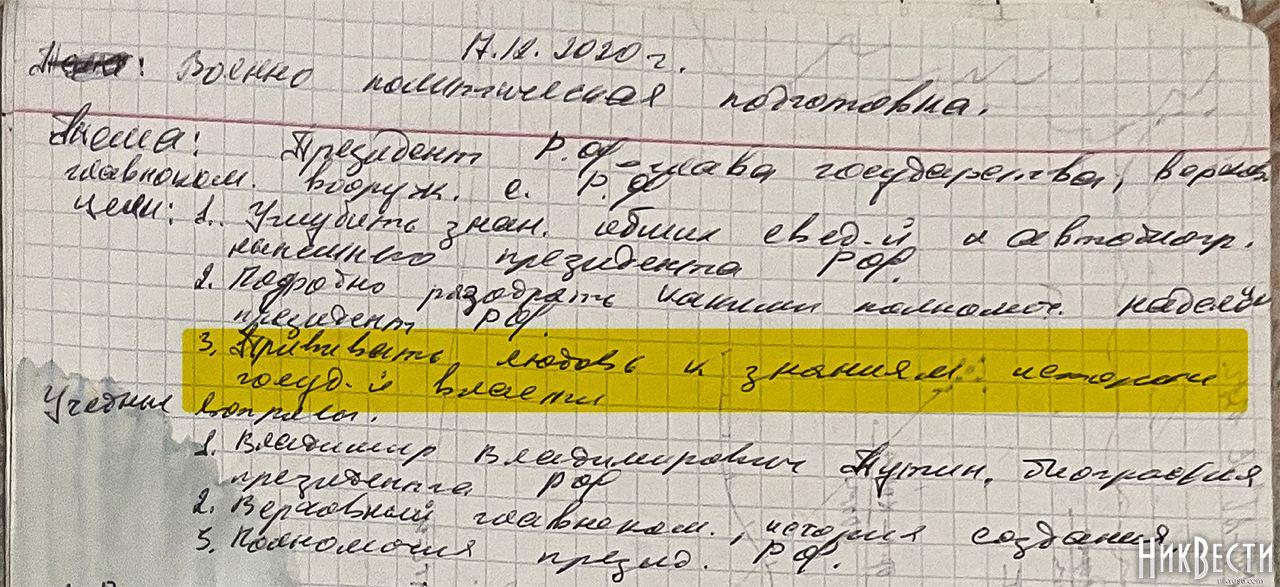 17.12.2020 г.
: Военно политическая подготовка.
Тема: Президент Р.Ф-глава государства, верхов
главноком. вооруж. с. Р.Ф
цели: 1. Углубить знан. общих свед-й и автобиогр.
нынешнего президента РФ.
2. Подробно разобрать какими полномоч. наделён
президент РФ.
3. Прививать любовь к знаниям истории
госуд-й власти
Учебные вопросы.
1. Владимир Владимирович Путин, биография
президента РФ
2. Верховный главноком., история создания
3. Полномочия презид. РФ.
НикВести